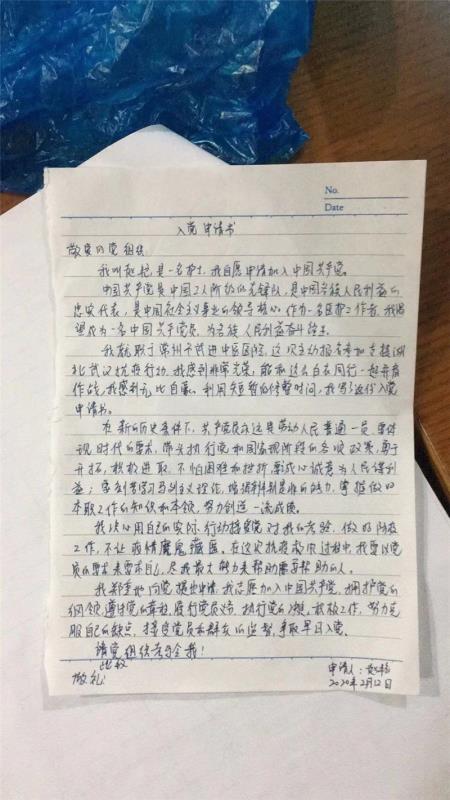 No.
Date
入党申请书
敬爱的党组织:
我叫 是一名护士,我自愿申请加入中国共产党。
中国共产党是中国工人阶级的先锋队,是中国各族人民利益的
忠实代表,是中国社会主义事业的领导核心。作为一名医护工作者,我渴
望成为一名中国共产党员,为各族人民利益奋斗终生。
我就职于常州市武进中医医院,这次主动报名参加支援湖
北武汉抗疫行动,我感到非常光荣,能和这么白衣同行一起并肩
作战,我感到无比自豪。利用短暂的休整时间,我写了这份入党
申请书。
在新的历史条件下,共产党员永远是劳动人民普通一员,要体
现时代的要求,带头执行党和国家现阶段的各项政策,勇于
开拓,积极进取,不怕困难和挫折,要诚心诚意为人民谋利
益;要刻苦学习马列主义理论,增强辨别是非的能力,掌握做好
本职工作的知识和本领,努力创造一流成绩。
我决心用自己的实际行动接受党对我的考验,做好防疫
工作,不让疫情魔鬼 在这次抗疫 过程中,我要以党
员的要求来要求自己,尽我最大努力来帮助需要帮助的人。
我郑重地向党提出申请:我志愿加入中国共产党,拥护党的
纲领,遵守党的章程,履行党员义务,执行党的决定,积极工作,努力克
服自己的缺点,接受党员和群众的监督,争取早日入党。
请党组织考验我!
此致
敬礼
申请人:
2020年2月12日